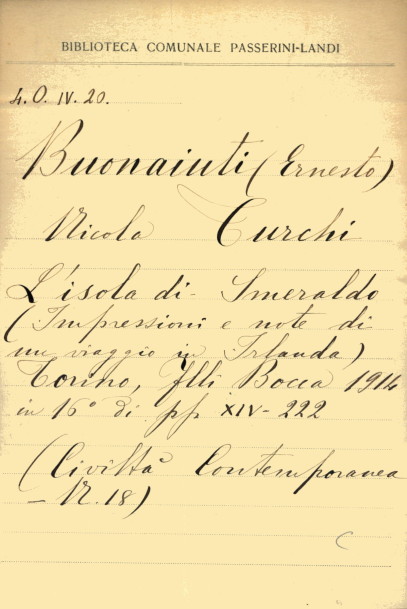 BIBLIOTECA COMUNALE PASSERINI-LANDI
4.O.IV.20.
Buonaiuti (Ernesto)
Nicola Turchi
L'isola di Smeraldo
(Impressioni e note di
un viaggio in Irlanda)
Torino, Flli Bocca 1914
in 16° di pp XIV-222
(Civiltà Contemporanea
- N. 18)
C